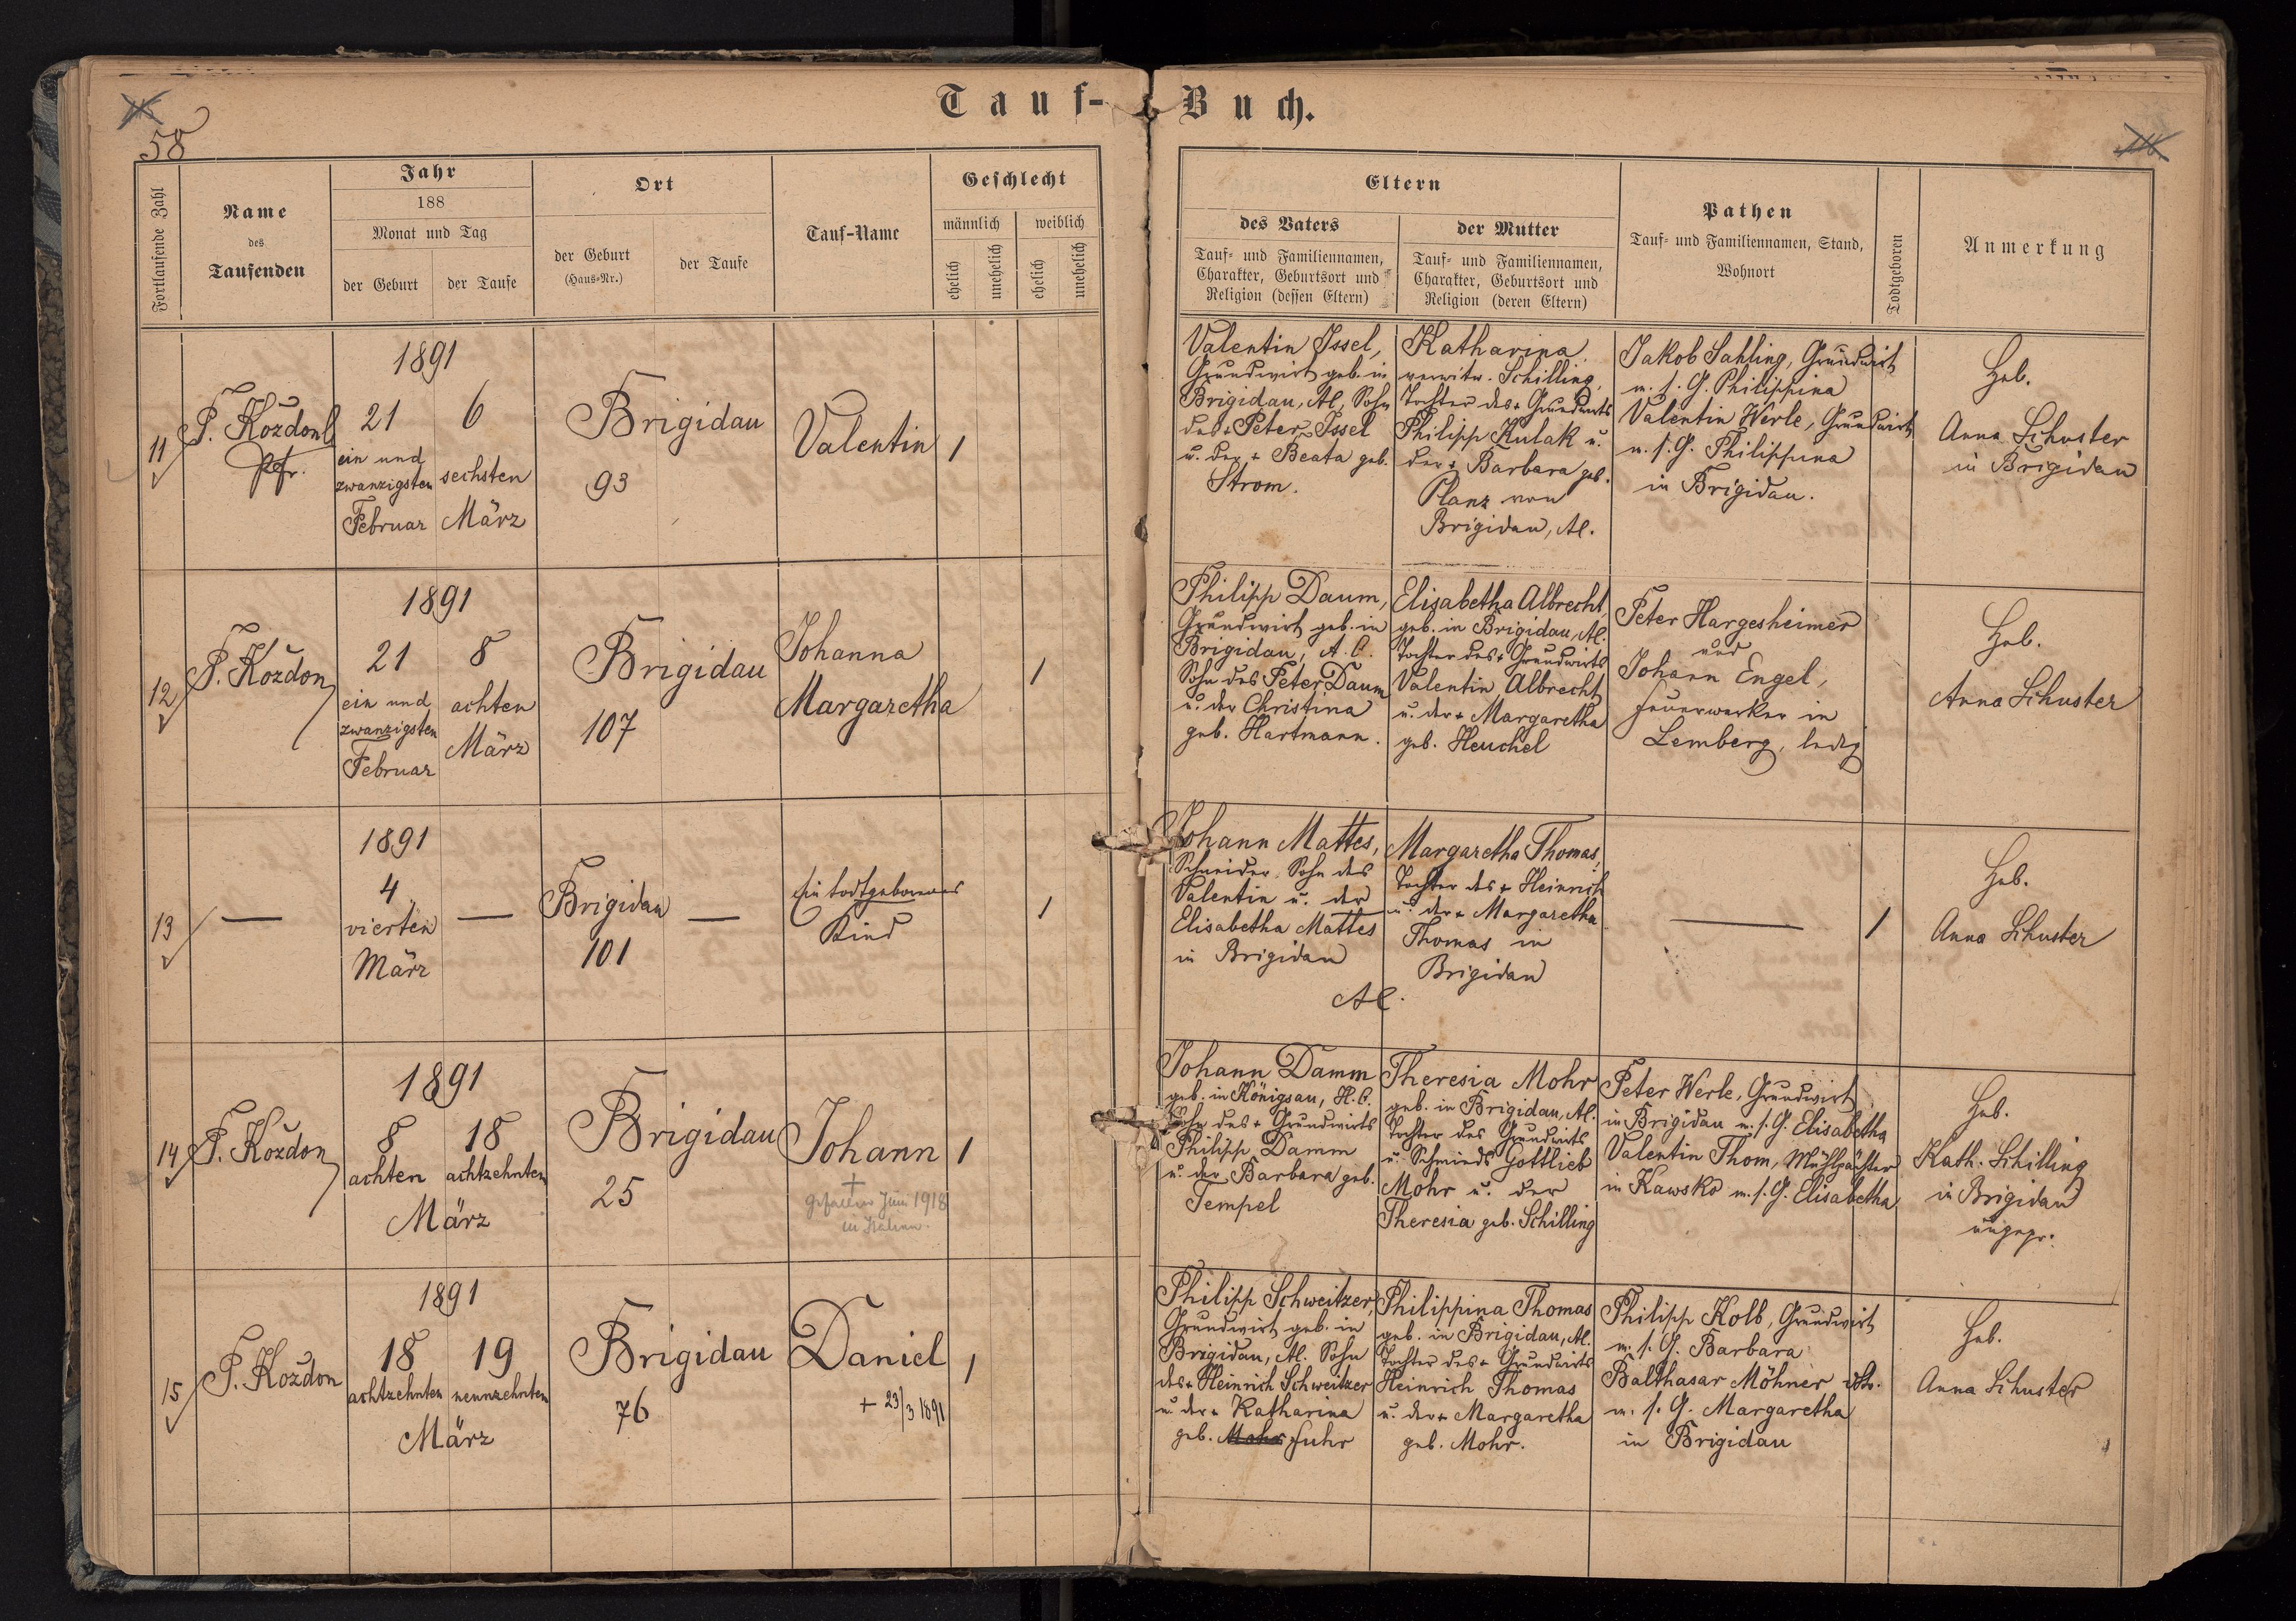 Tauf-Buch.
58
Fortlaufende Zahl
Name
des
Taufenden
Jahr
188
Monat und Tag
der Geburt
der Taufe
Ort
der Geburt
(Haus-Nr.)
der Taufe
Tauf-Name
Geschlecht
männlich
weiblich
ehelich
unehelich
ehelich
unehelich
Eltern
des Vaters
Tauf- und Familiennamen,
Charakter, Geburtsort und
Religion (dessen Eltern)
der Mutter
Tauf- und Familiennamen,
Charakter, Geburtsort und
Religion (deren Eltern)
Pathen
Tauf- und Familiennamen, Stand,
Wohnort
Todtgeboren
Anmerkung
11
P. Kozdon
Pfr.
1891
21
ein und
zwanzigsten
Februar
6
sechsten
März
Brigidau
93
Valentin
1
Valentin Issel,
Grundwirt geb. in
Brigidau, A.C. Sohn
des + Peter Issel
u. der + Beata geb.
Strom.
Katharina
verwitw. Schilling,
Tochter des + Grundwirts
Philipp Kulak u.
der + Barbara geb.
Planz von
Brigidau, A.C.
Jakob Sahling, Grundwirt
m. s. G. Philippina
Valentin Werle, Grundwirt
m. s. G. Philippina
in Brigidau.
Heb.
Anna Schuster
in Brigidau
12
P. Kozdon
1891
21
ein und
zwanzigsten
Februar
8
achten
März
Brigidau
107
Johanna
Margaretha
1
Philipp Daum,
Grundwirt geb. in
Brigidau, A.C.
Sohn des Peter Daum
u. der Christina
geb. Hartmann.
Elisabetha Albrecht
geb. in Brigidau, A.C.
Tochter des + Grundwirts
Valentin Albrecht
u. der + Margaretha
geb. Heuchel
Peter Hargesheimer
und
Johann Engel,
Feuerwerker in
Lemberg, ledig
Heb.
Anna Schuster
13
—
1891
4
vierten
März
—
Brigidau
101
—
Ein todtgeborenes
Kind
1
Johann Mattes,
Schneider, Sohn des
Valentin u. der
Elisabetha Mattes
in Brigidau
A.C.
Margaretha Thomas,
Tochter des + Heinrich
u. der + Margaretha
Thomas in
Brigidau
—
1
Heb.
Anna Schuster
14
P. Kozdon
1891
8
achten
18
achtzehnten
März
Brigidau
25
Johann
+
gefallen Juni 1918
in Italien.
1
Johann Damm
geb. in Königsau, H.C.
Sohn des + Grundwirts
Philipp Damm
u. der Barbara geb.
Tempel
Theresia Mohr
geb. in Brigidau, A.C.
Tochter des Grundwirts
u. Schmieds Gottlieb
Mohr u. der
Theresia geb. Schilling
Peter Werle, Grundwirt
in Brigidau m. s. G. Elisabetha
Valentin Thom, Mühlpächter
in Kawsko m. s. G. Elisabetha
Heb.
Kath. Schilling
in Brigidau
ungepr.
15
P. Kozdon
1891
18
achtzehnten
19
neunzehnten
März
Brigidau
76
Daniel
+ 23/3 1891
1
Philipp Schweitzer,
Grundwirt geb. in
Brigidau, A.C. Sohn
des + Heinrich Schweitzer
u. der + Katharina
geb. Mohr Fuhr
Philippina Thomas
geb. in Brigidau, A.C.
Tochter des + Grundwirts
Heinrich Thomas
u. der + Margaretha
geb. Mohr.
Philipp Kolb, Grundwirt
m. s. G. Barbara
Balthasar Möhner
m. s. G. Margaretha
in Brigidau
Heb.
Anna Schuster